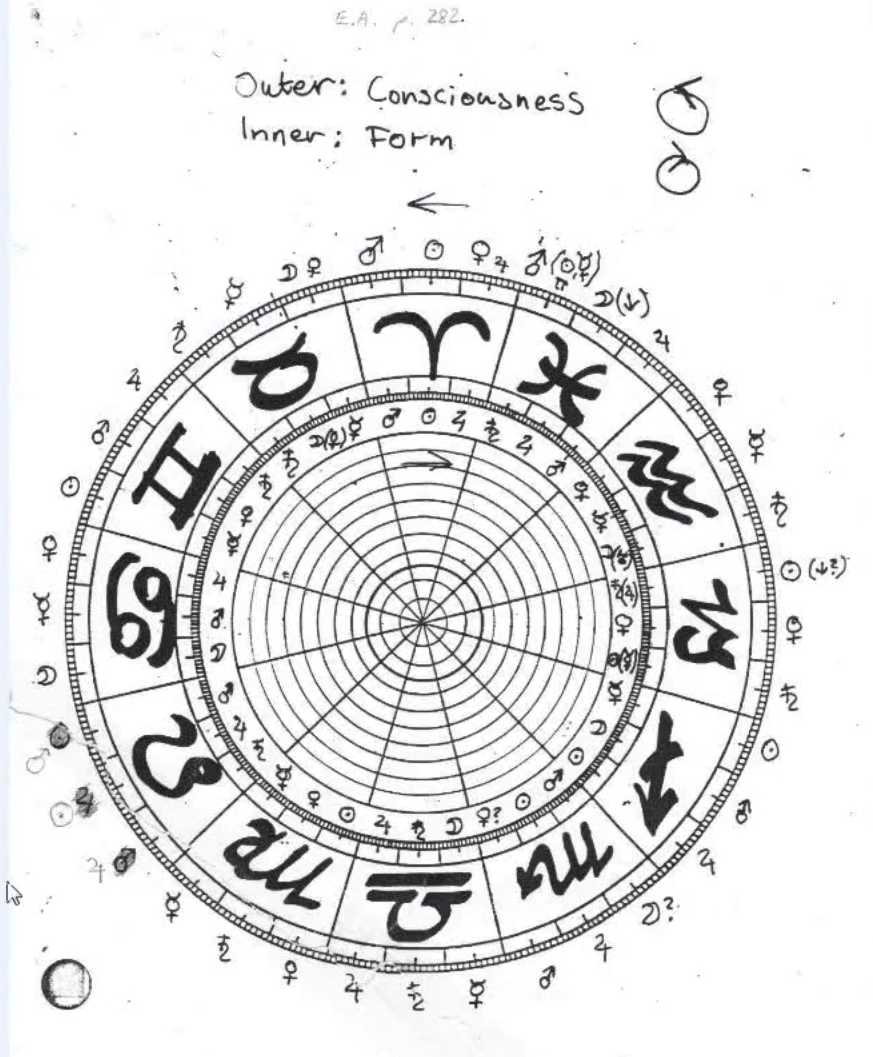 E.A. p. 282.
Outer: Consciousness
Inner: Form